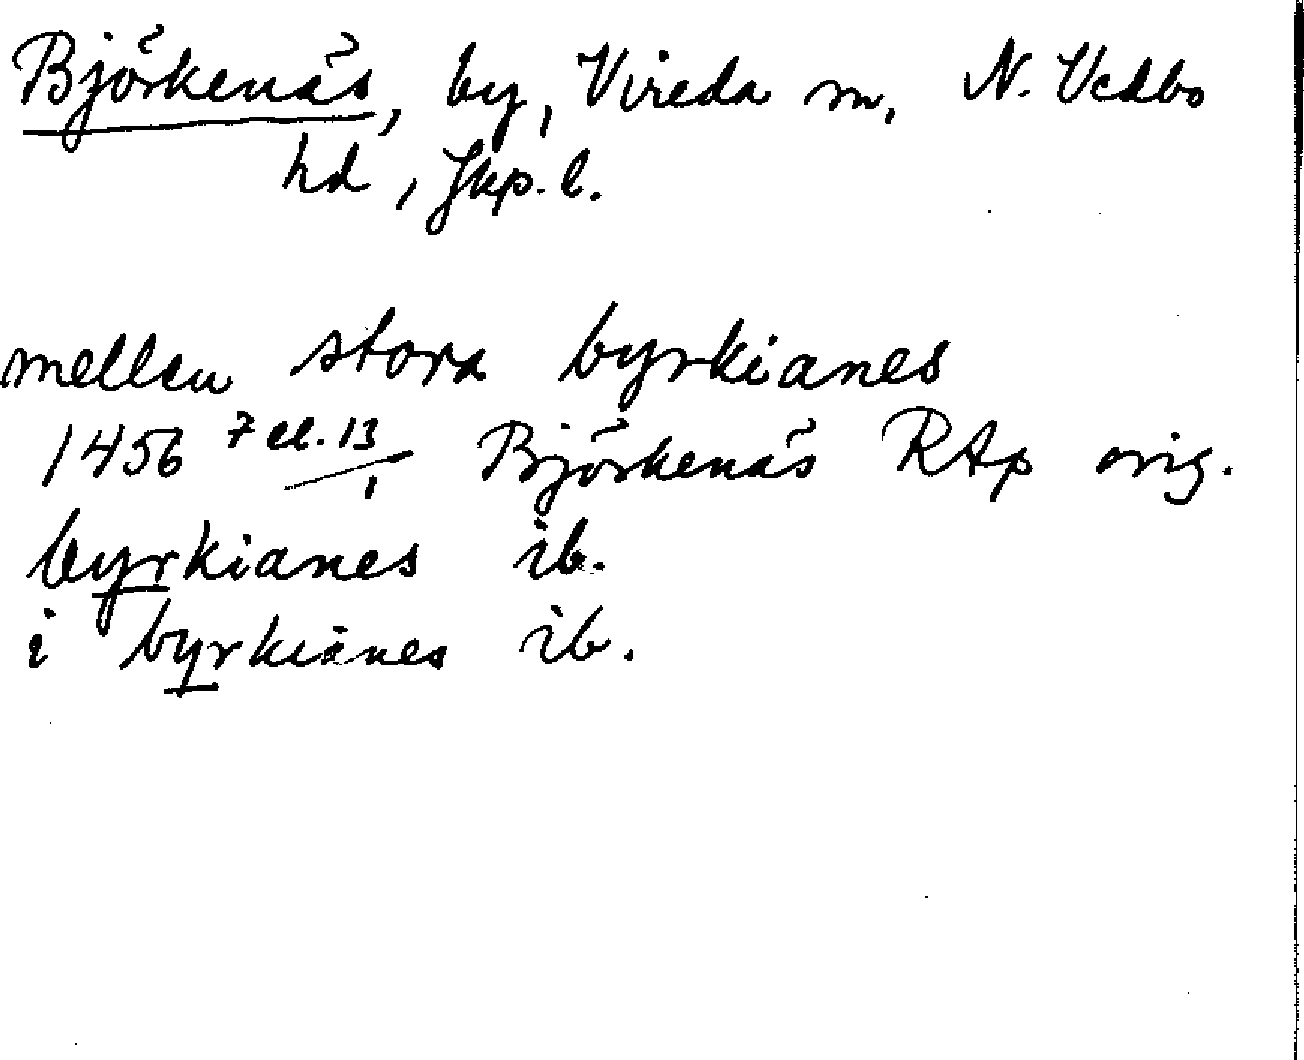 Björkenäs, by, Vireda sn, N. Vedbo
hd, Jkp. l.
mellan stora byrkianes
1456 7 el. 13/1 Björkenäs RAp orig.
byrkianes ib.
i byrkianes ib.